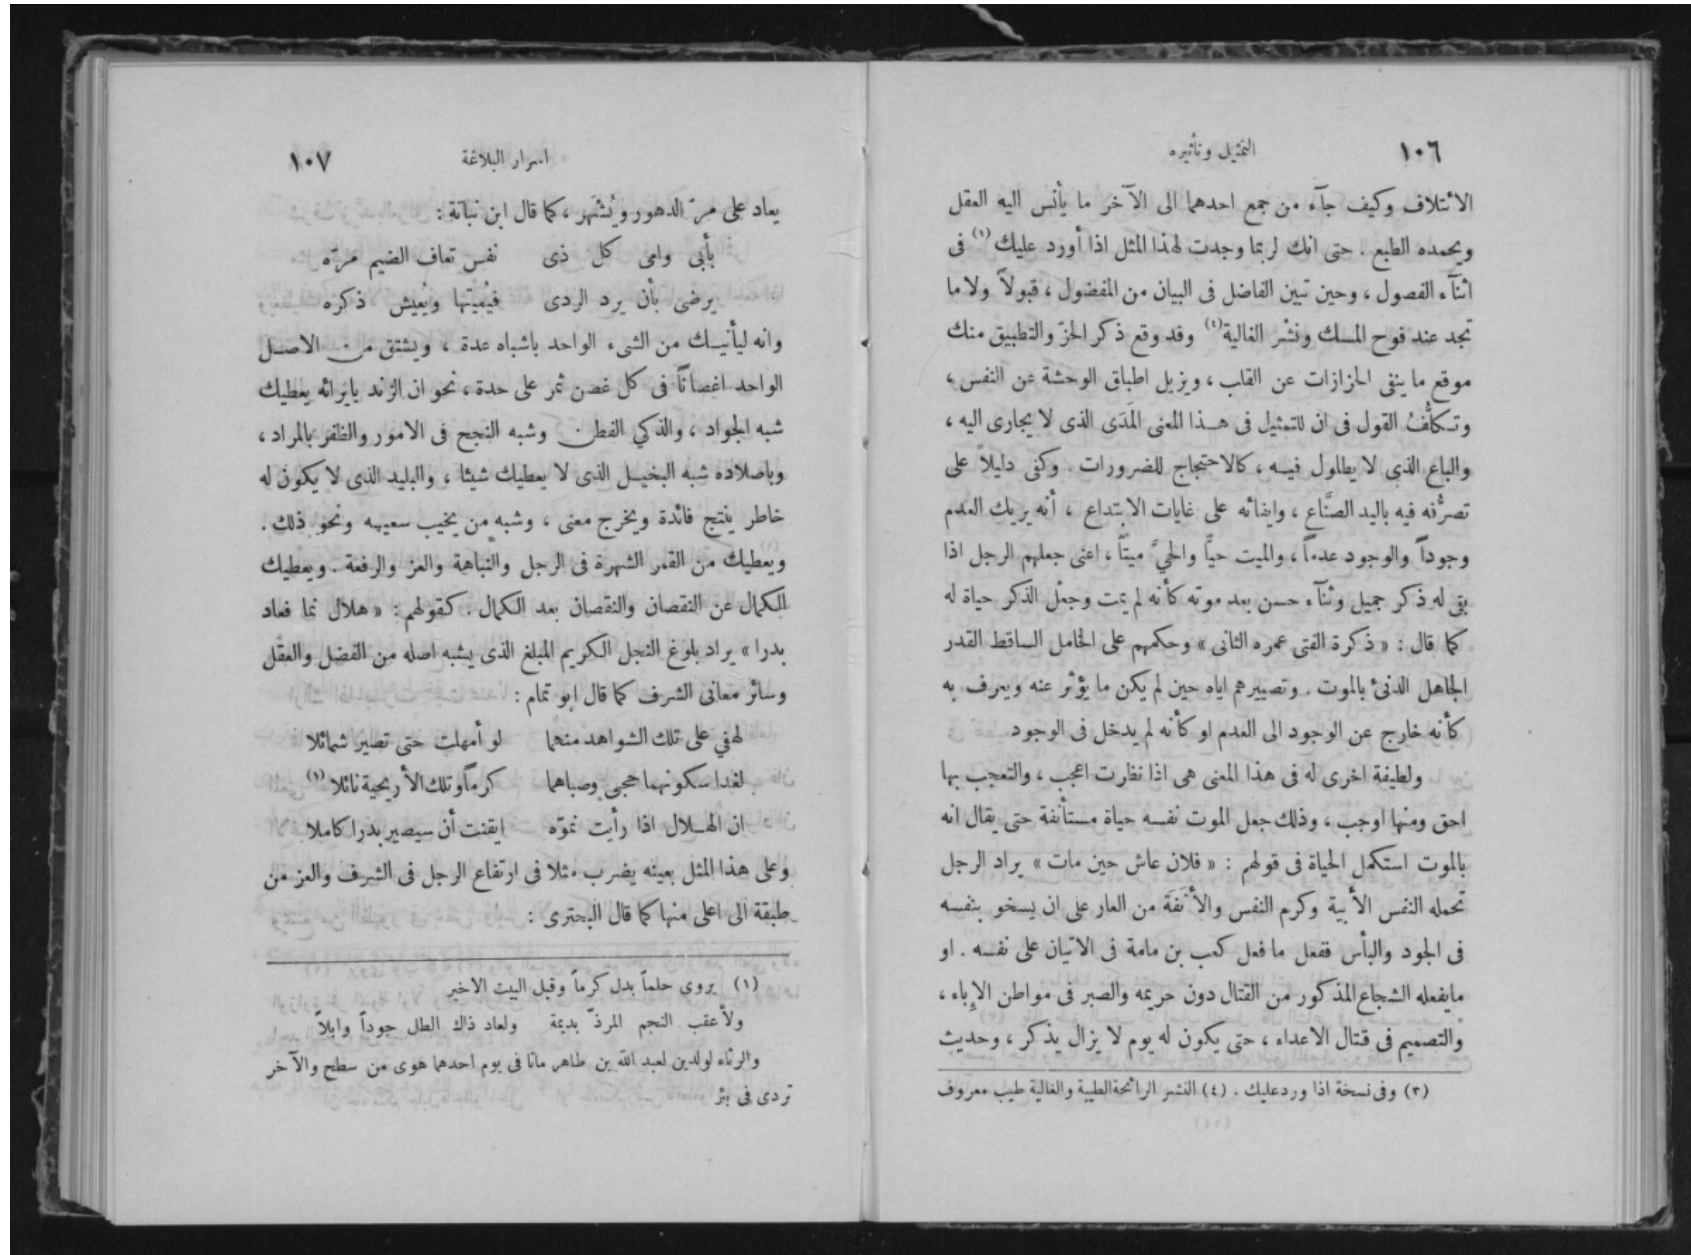 ١٠٦ التمثيل وتأثيره
الائتلاف وكيف جآء من جمع احدهما الى الآخر ما يأنس اليه العقل
ويحمده الطبع . حتى انك لربما وجدت لهذا المثل اذا أورد عليك (٣) فى
اثنآء الفصول ، وحين تبين الفاضل فى البيان من المفضول ، قبولاً ولا ما
تجد عند فوح المسك ونشْر الغالية (٤) وقد وقع ذكر الحزّ والتطبيق منك
موقع ما ينفى الحزازات عن القلب ، ويزيل اطباق الوحشة عن النفس ،
وتكلُّفُ القول فى ان للتمثيل فى هـذا المعنى المَدَى الذى لا يجارى اليه ،
والباع الذى لا يطاول فيـه ، كالاحتجاج للضرورات . وكفى دليلاً على
تصرُّفه فيه باليد الصنَّاع ، وايفائه على غايات الابتداع ، أنه يريك العدم
وجوداً والوجود عدماً ، والميت حياً والحيَّ ميتاً ، اعنى جعلهم الرجل اذا
بقى له ذكر جميل وثنآء حسن بعد موته كأنه لم يمت وجعْل الذكر حياة له
كما قال : « ذكرة الفتى عمره الثانى » وحكمهم على الخامل الساقط القدر
الجاهل الدنئ بالموت . وتصييرهم اياه حين لم يكن ما يؤثر عنه ويعرف به
كأنه خارج عن الوجود الى العدم او كأنه لم يدخل فى الوجود
ولطيفة اخرى له فى هذا المعنى هى اذا نظرت اعجب ، والتعجب بها
احق ومنها اوجب ، وذلك جعل الموت نفسه حياة مستأنفة حتى يقال انه
بالموت استكمل الحياة فى قولهم : « فلان عاش حين مات » يراد الرجل
تحمله النفس الأبية وكرم النفس والأَنَفَة من العار على ان يسخو بنفسه
فى الجود والبأس ففعل ما فعل كعب بن مامة فى الاتيان على نفسه . او
مايفعله الشجاع المذكور من القتال دون حريمه والصبر فى مواطن الإباء ،
والتصميم فى قتال الاعداء ، حتى يكون له يوم لا يزال يذكر ، وحديث
(٣) وفى نسخة اذا ورد عليك . (٤) النشر الرائحة الطيبة والغالية طيب معروف
اسرار البلاغة ١٠٧
يعاد على مرّ الدهور ويُشْهَر ، كما قال ابن نباتة :
بأبى وامى كل ذى نفس تعاف الضيم مرّه
يرضى بأن يرد الردى فيُميتها ويُعيش ذكره
وانه ليأتيـك من الشىء الواحد باشباه عدة ، ويشتق من الاصـل
الواحد اغصاناً فى كل غصن ثمر على حدة ، نحو ان الزند بايرائه يعطيك
شبه الجواد ، والذكي الفطن وشبه النجح فى الامور والظفر بالمراد ،
وباصلاده شبه البخيـل الذى لا يعطيك شيئا ، والبليد الذى لا يكون له
خاطر ينتج فائدة ويخرج معنى ، وشبه من يخيب سعيـه ونحو ذلك .
ويعطيك من القمر الشهرة فى الرجل والنباهة والعز والرفعة . ويعطيك
الكمال عن النقصان والنقصان بعد الكمال . كقولهم : « هلال نما فعاد
بدرا » يراد بلوغ النجل الكريم المبلغ الذى يشبه اصله من الفضل والعقل
وسائر معانى الشرف كما قال ابو تمام :
لهفي على تلك الشواهد منهما لو أمهلت حتى تصير شمائلا
لغدا سكونهما حجى وصباهما كرماً وتلك الأريحية نائلا (١)
ان الهـلال اذا رأيت نموّه ايقنت أن سيصير بدرا كاملا
وعلى هذا المثل بعينه يضرب مثلا فى ارتفاع الرجل فى الشرف والعز من
طبقة الى اعلى منها كما قال البحترى :
(١) يروى حلماً بدل كرماً وقبل البيت الاخير
ولأعقب النجم المرذّ بديمة ولعاد ذاك الطل جوداً وابلاً
والرثاء لولدين لعبد الله بن طاهر ماتا فى يوم احدهما هوى من سطح والآخر
تردى فى بئر